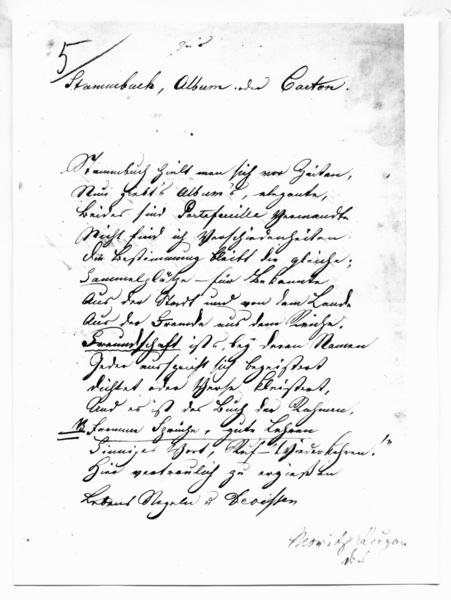 5
Stammbuch, Album oder Carton.
Stammbuch hielt man sich vor Zeiten,
Nun giebt's Album's, elegante,
Beides sind Portefeuille Verwandte
Nicht find ich Verschiedenheiten
Die Bestimmung bleibt die gleiche;
Sammelplätze – für Bekannte
Aus der Stadt und von dem Lande
Aus der Fremde aus dem Reiche.
Freundschaft ists, bey deren Namen
Jeder ausspricht sich begeistert
Dichtet oder Verse kleistert,
Und es ist das Buch der Rahmen,
Fromme Sprüche, gute Lehren
Sinniges Wort, Ruf – Wiederkehren!"
Hier vertraulich zu ergießen
Lebens Regeln u Devisen
Moritz